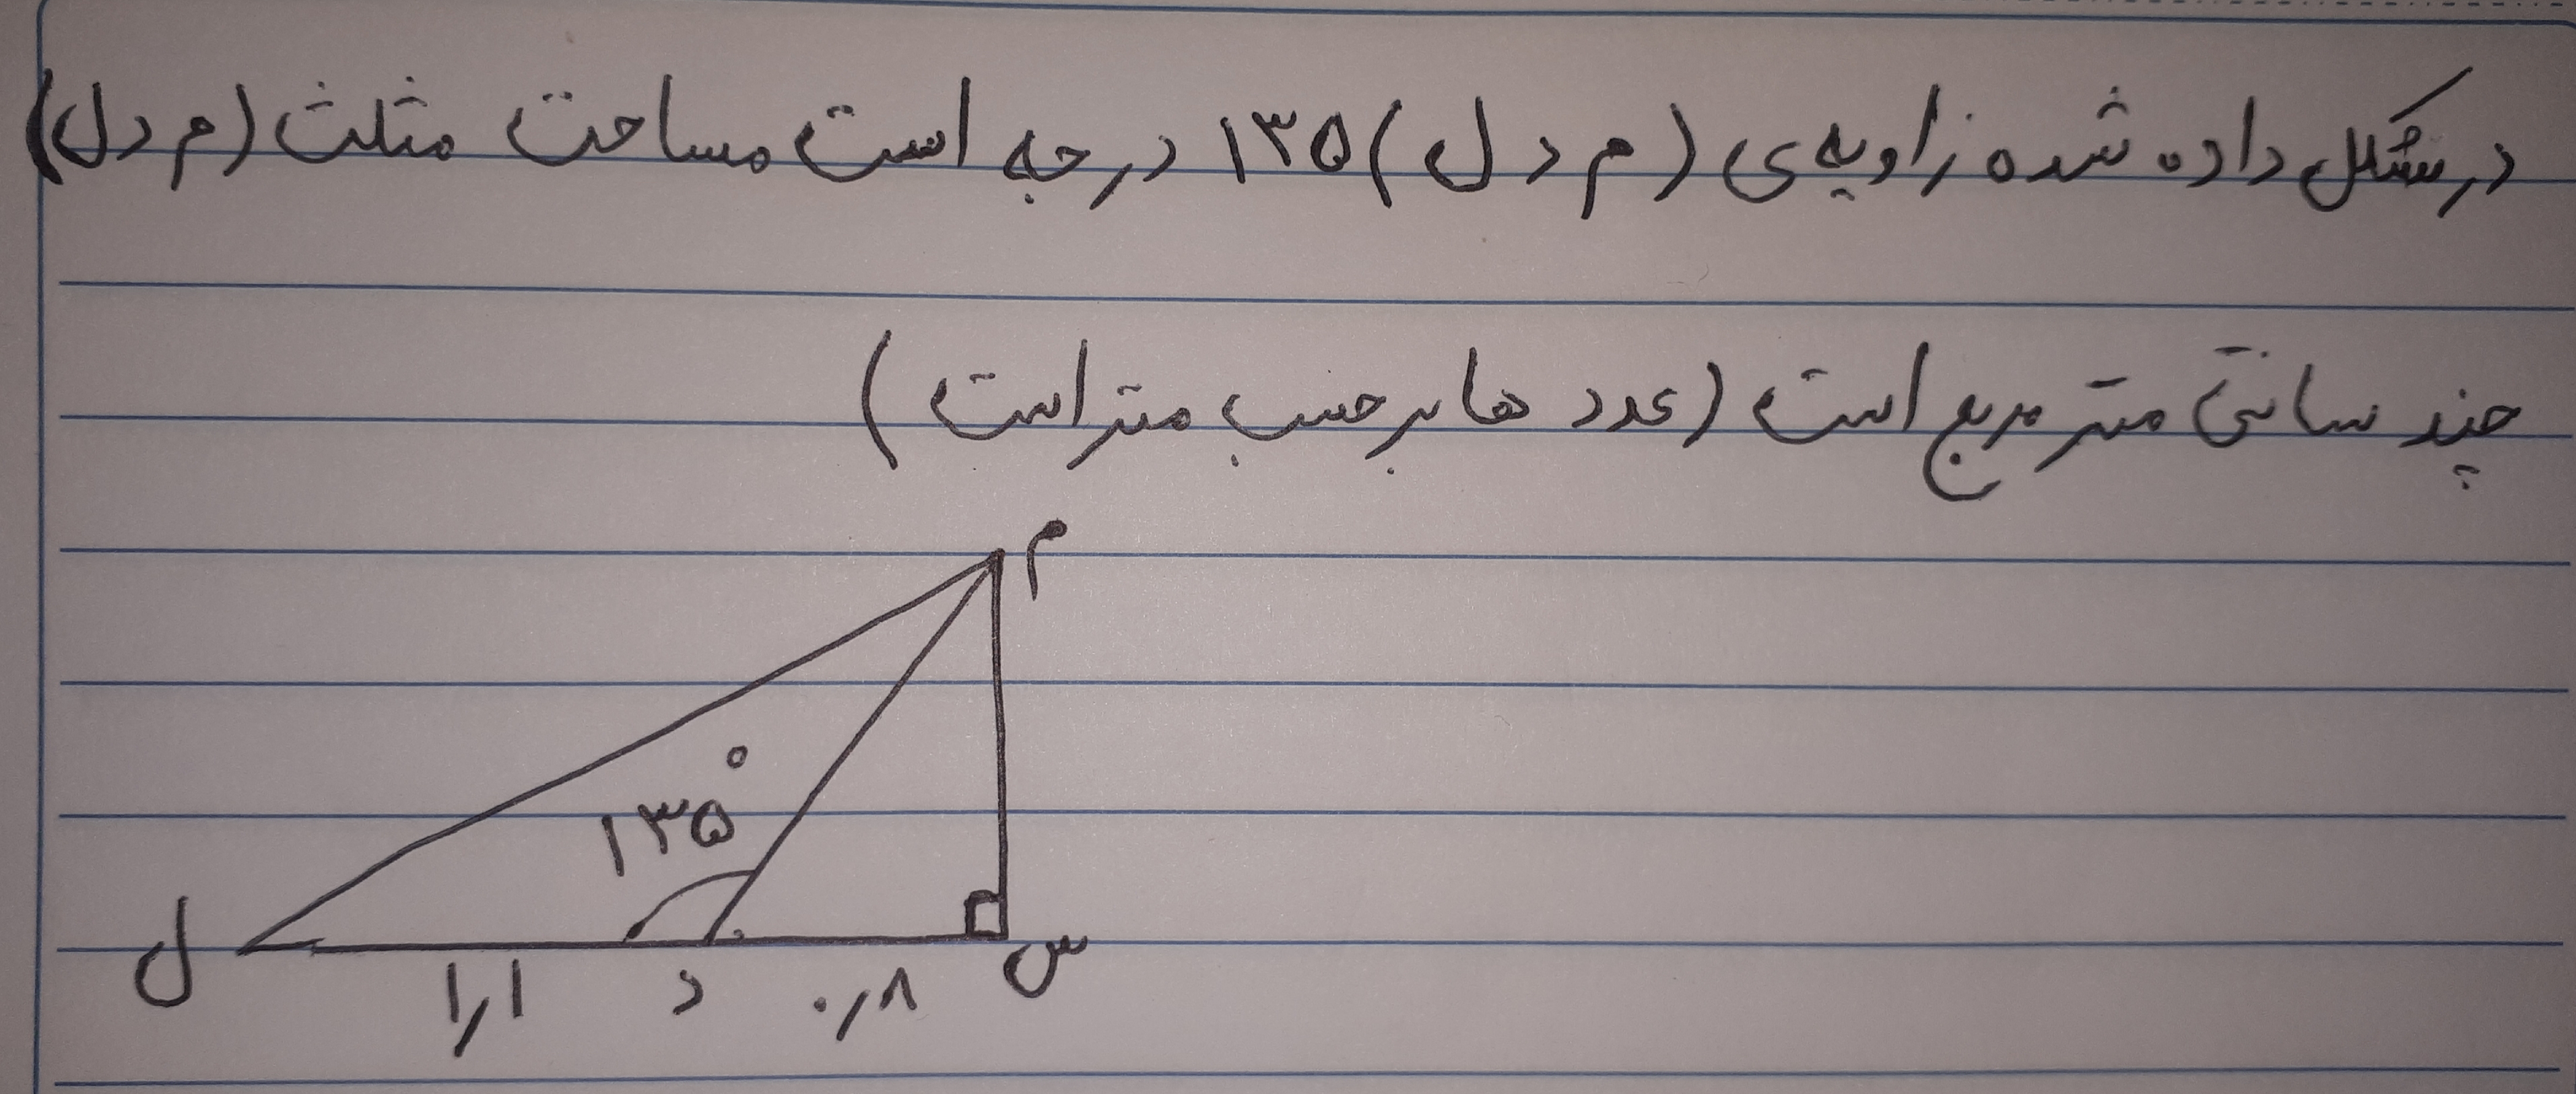 در شکل داده شده زاویه‌ی (م د ل) ۱۳۵ درجه است مساحت مثلث (م د ل)
چند سانتی متر مربع است (عدد ها بر حسب متر است)
م
۱۳۵°
ل ۱٫۱ د ۰٫۸ س